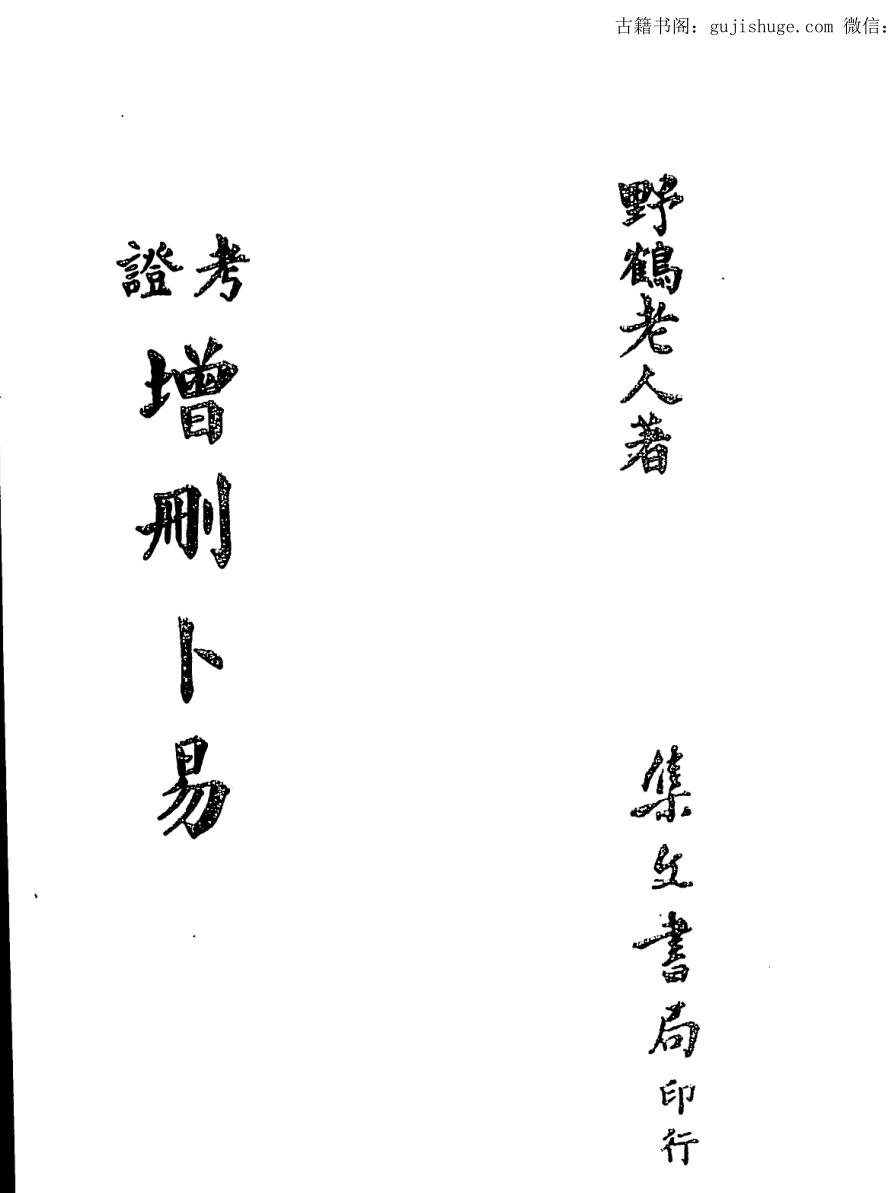 古籍书阁：gujishuge.com 微信：
野鶴老人著
集文書局印行
考證
增刪卜易